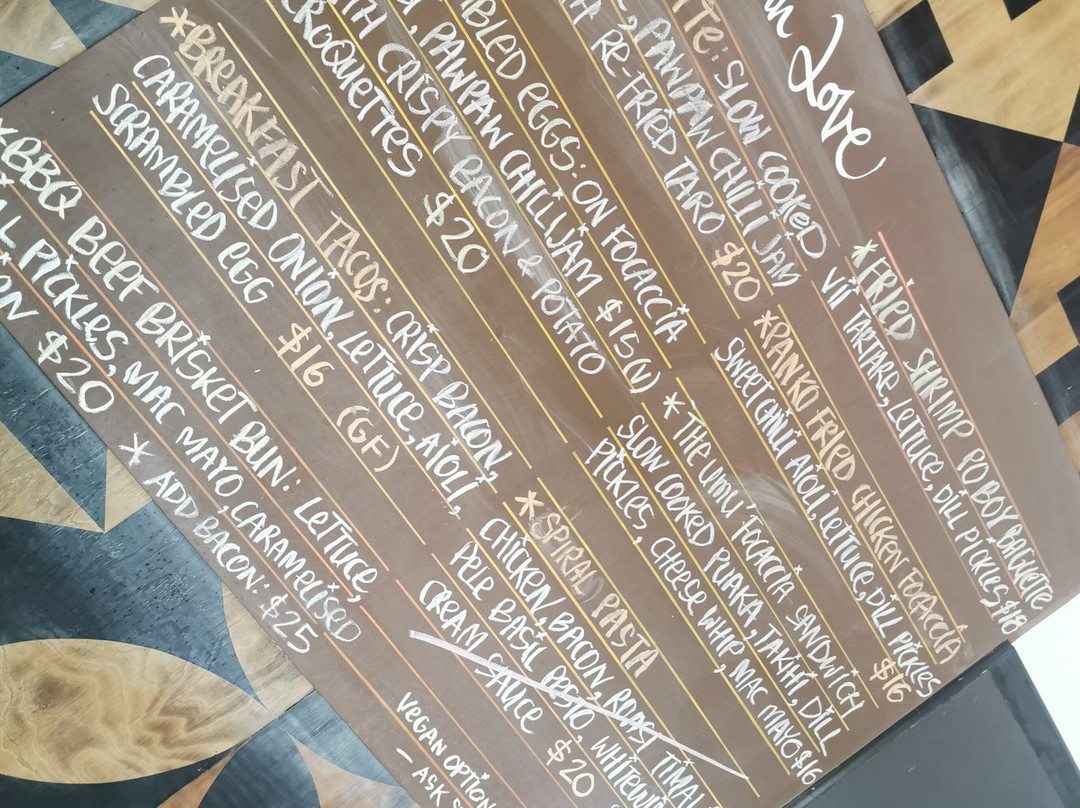 Love
SLOW COOKED
PAWPAW CHILLI JAM
RE-FRIED TARO $20
EGGS: ON FOCACCIA
PAWPAW CHILLI JAM $15(V)
CRISPY BACON & POTATO
CROQUETTES $20
*BREAKFAST TACOS: CRISP BACON,
CARAMELISED ONION, LETTUCE, AIOLI,
SCRAMBLED EGG $16 (GF)
*BBQ BEEF BRISKET BUN: LETTUCE,
PICKLES, MAC MAYO, CARAMELISED
$20
* ADD BACON: $25
*FRIED SHRIMP PO BOY BAGUETTE
VII TARTARE, LETTUCE, DILL PICKLES $18
*PANKO FRIED CHICKEN FOCACCIA
SWEET CHILLI AIOLI, LETTUCE, DILL PICKLES
$16
* THE 'UMU' FOCACCIA SANDWICH
SLOW COOKED PUAKA, TAKIHI, DILL
PICKLES, CHEESE WHIP, MAC MAYO $16
*SPIRAL PASTA
CHICKEN, BACON, ROAST
PELE BASIL PESTO,
CREAM SAUCE $20
VEGAN OPTION
- ASK